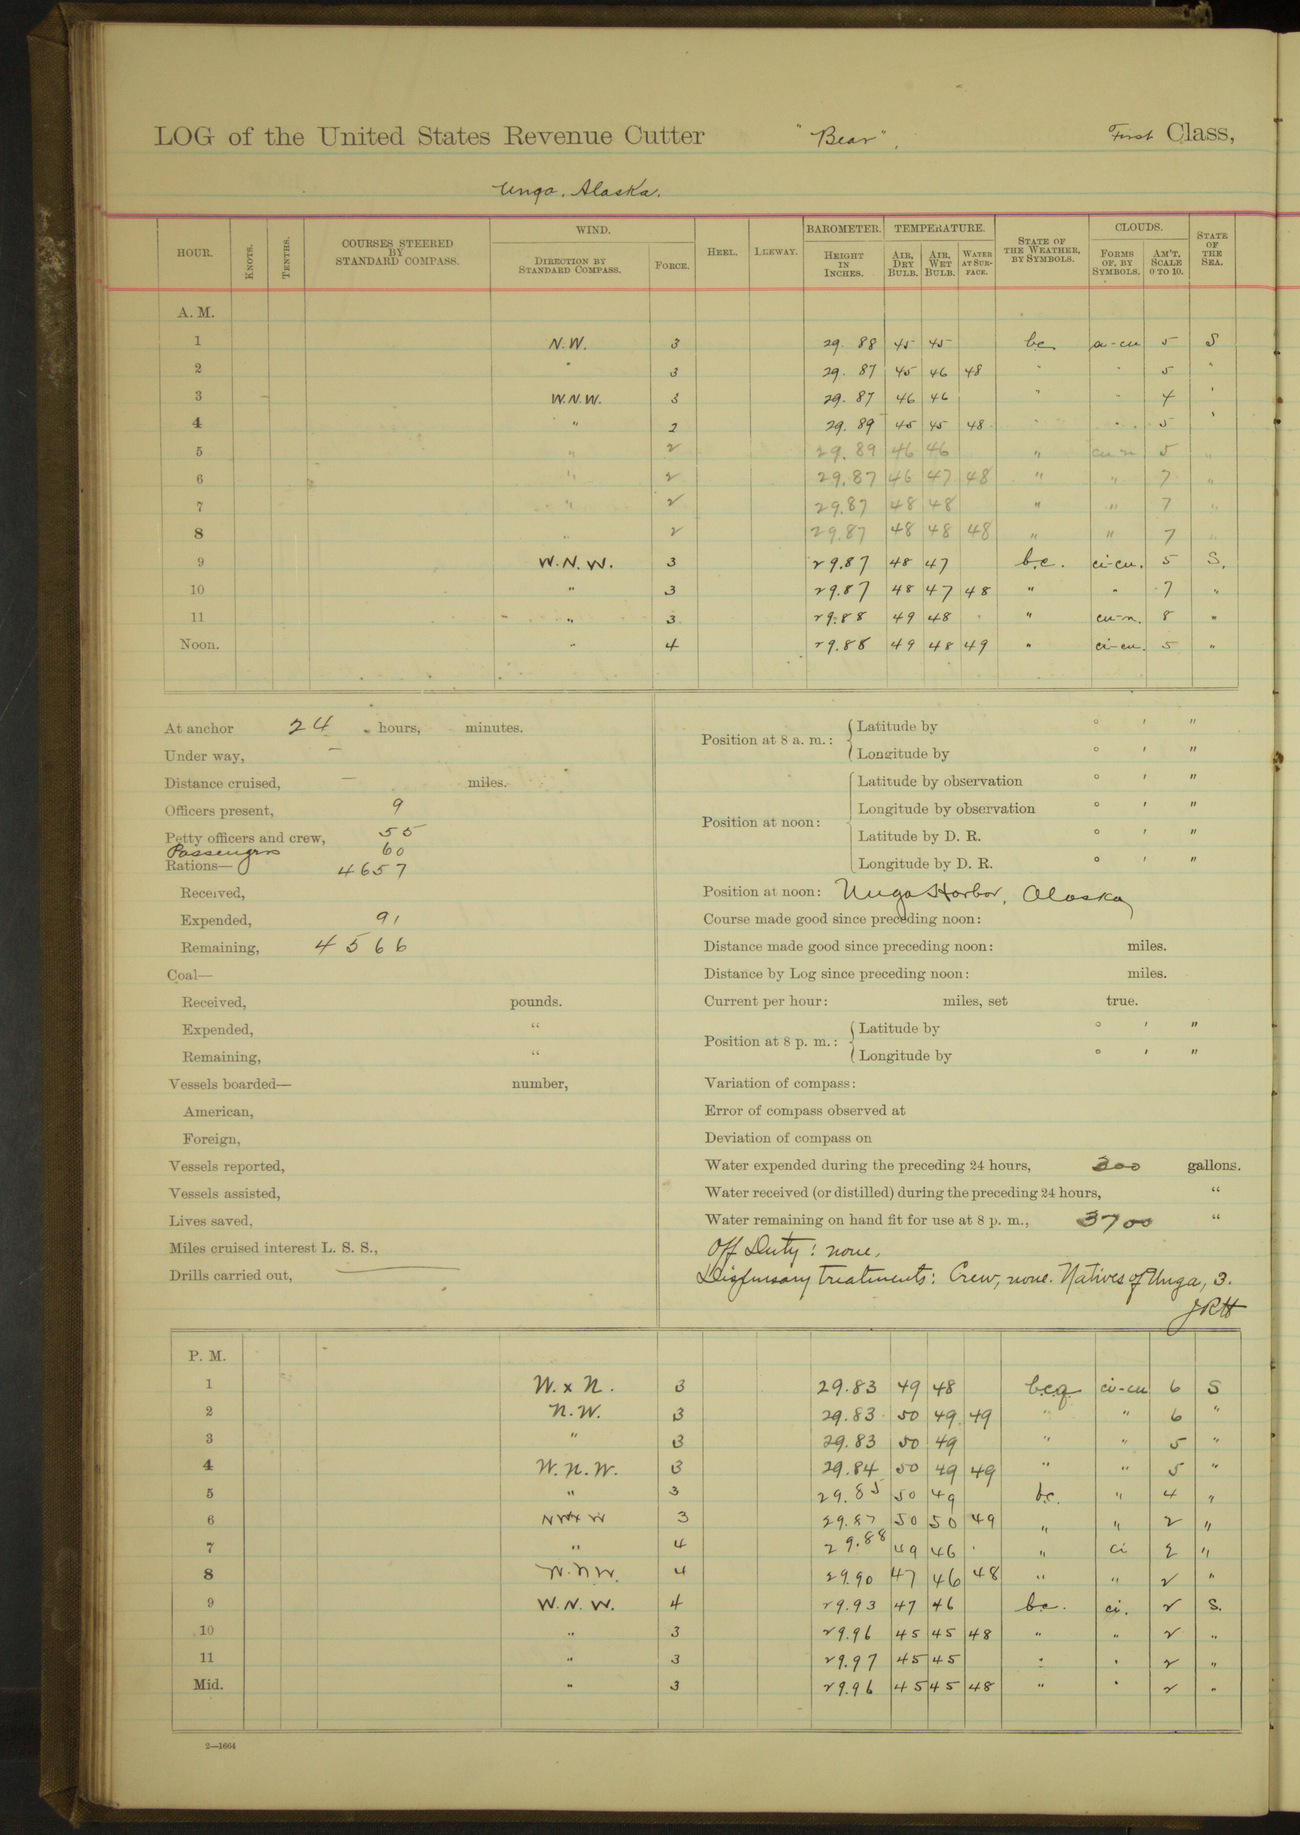 LOG of the United States Revenue Cutter "Bear", First Class,
Unga, Alaska.
HOUR. KNOTS. TENTHS. COURSES STEERED BY STANDARD COMPASS. WIND. DIRECTION BY STANDARD COMPASS. FORCE. HEEL. LEEWAY. BAROMETER. HEIGHT IN INCHES. TEMPERATURE. AIR, DRY BULB. AIR, WET BULB. WATER AT SURFACE. STATE OF THE WEATHER, BY SYMBOLS. CLOUDS. FORMS OF, BY SYMBOLS. AM'T, SCALE 0 TO 10. STATE OF THE SEA.
A. M.
1 N.W. 3 29. 88 45 45 bc 5 S
2 " 3 29. 87 45 46 48 " " 5 "
3 W.N.W. 3 29. 87 46 46 " " 4 "
4 " 2 29. 89 45 45 48 " " 5 "
5 " 2 29. 89 46 46 " cu-n 5 "
6 " 2 29.87 46 47 48 " " 7 "
7 " 2 29.87 48 48 " " 7 "
8 " 2 29.87 48 48 48 " " 7 "
9 W.N.W. 3 29.87 48 47 b.c. ci-cu. 5 S.
10 " 3 29.87 48 47 48 " " 7 "
11 " 3 29.88 49 48 " cu-n. 8 "
Noon. " 4 29.88 49 48 49 " ci-cu. 5 "
At anchor 24 hours, minutes.
Under way, —
Distance cruised, — miles.
Officers present, 9
Petty officers and crew, 55
Passengers 60
Rations— 4657
Received,
Expended, 91
Remaining, 4566
Coal—
Received, pounds.
Expended, "
Remaining, "
Vessels boarded— number,
American,
Foreign,
Vessels reported,
Vessels assisted,
Lives saved,
Miles cruised interest L. S. S.,
Drills carried out,
Position at 8 a. m.: Latitude by ° ' "
Longitude by ° ' "
Position at noon: Latitude by observation ° ' "
Longitude by observation ° ' "
Latitude by D. R. ° ' "
Longitude by D. R. ° ' "
Position at noon: Unga Harbor, Alaska
Course made good since preceding noon:
Distance made good since preceding noon: miles.
Distance by Log since preceding noon: miles.
Current per hour: miles, set true.
Position at 8 p. m.: Latitude by ° ' "
Longitude by ° ' "
Variation of compass:
Error of compass observed at
Deviation of compass on
Water expended during the preceding 24 hours, 300 gallons.
Water received (or distilled) during the preceding 24 hours, "
Water remaining on hand fit for use at 8 p. m., 3700 "
Off Duty: none.
Dispensary treatments: Crew, none. Natives of Unga, 3.
JRH
P. M.
1 W. x N. 3 29.83 49 48 b.c.q. ci-cu 6 S
2 N.W. 3 29.83 50 49 49 " " 6 "
3 " 3 29.83 50 49 " " 5 "
4 W.N.W. 3 29.84 50 49 49 " " 5 "
5 " 3 29.85 50 49 bc. " 4 "
6 3 29.87 50 50 49 " " 2 "
7 " 4 29.88 49 46 " ci 2 "
8 W.N.W. 4 29.90 47 46 48 " " 2 "
9 W.N.W. 4 29.93 47 46 b.c. ci. 2 S.
10 " 3 29.96 45 45 48 " " 2 "
11 " 3 29.97 45 45 " " 2 "
Mid. " 3 29.96 45 45 48 " " 2 "
2—1664